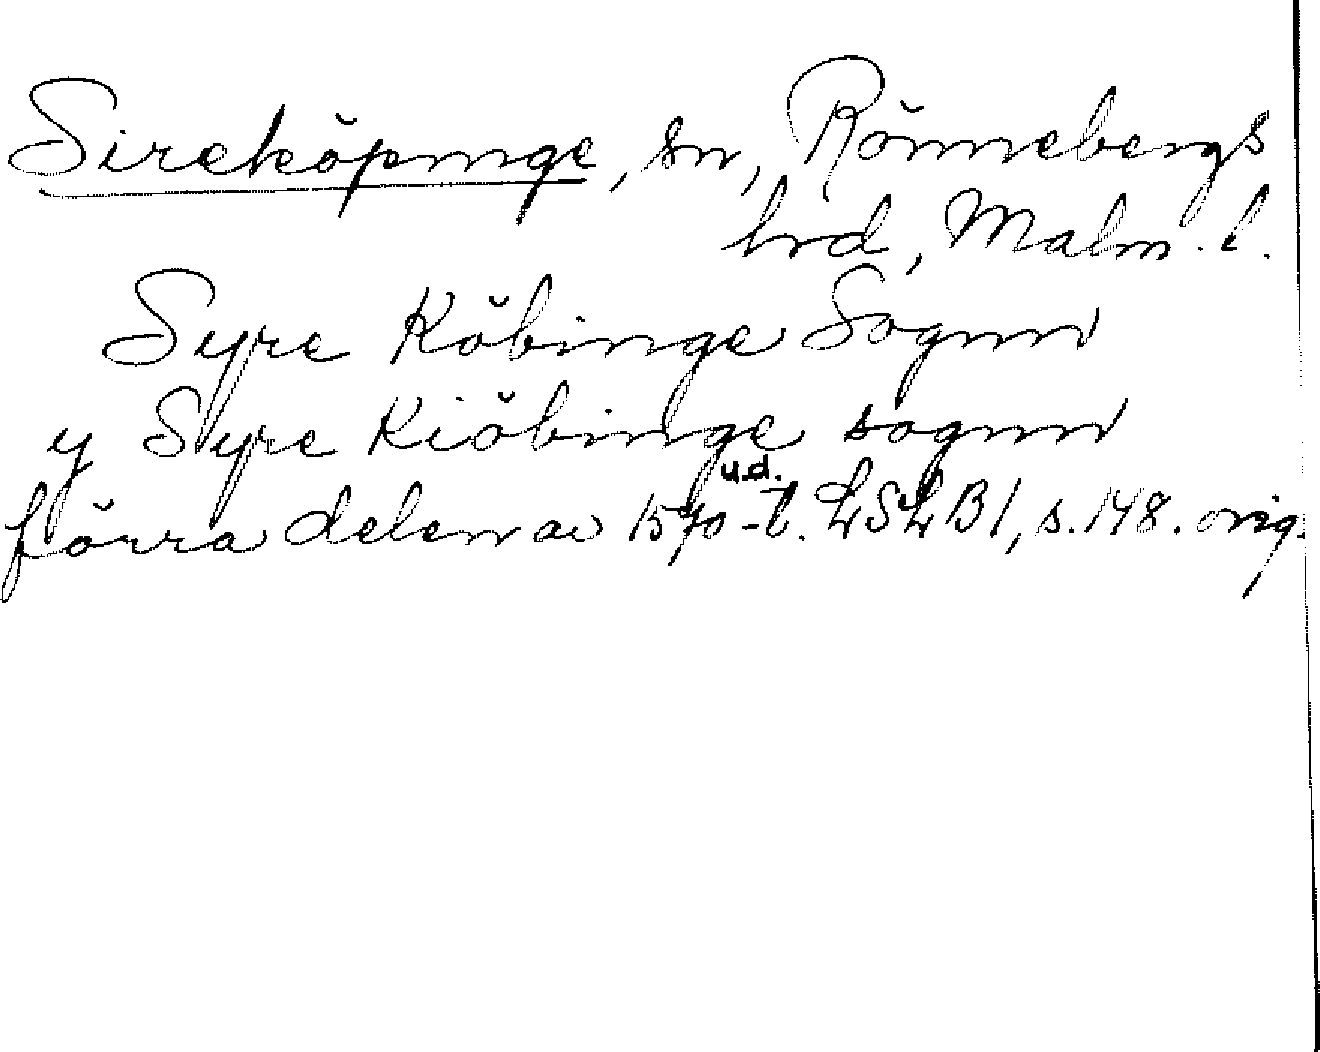 Sireköpinge, sn, Rönnebergs
hrd, Malm. l.
Syre Köbinge Sognn
y Syre Kiöbinge sognn
u.d.
förra delen av 1570-t. LSLB1, s. 148. orig.